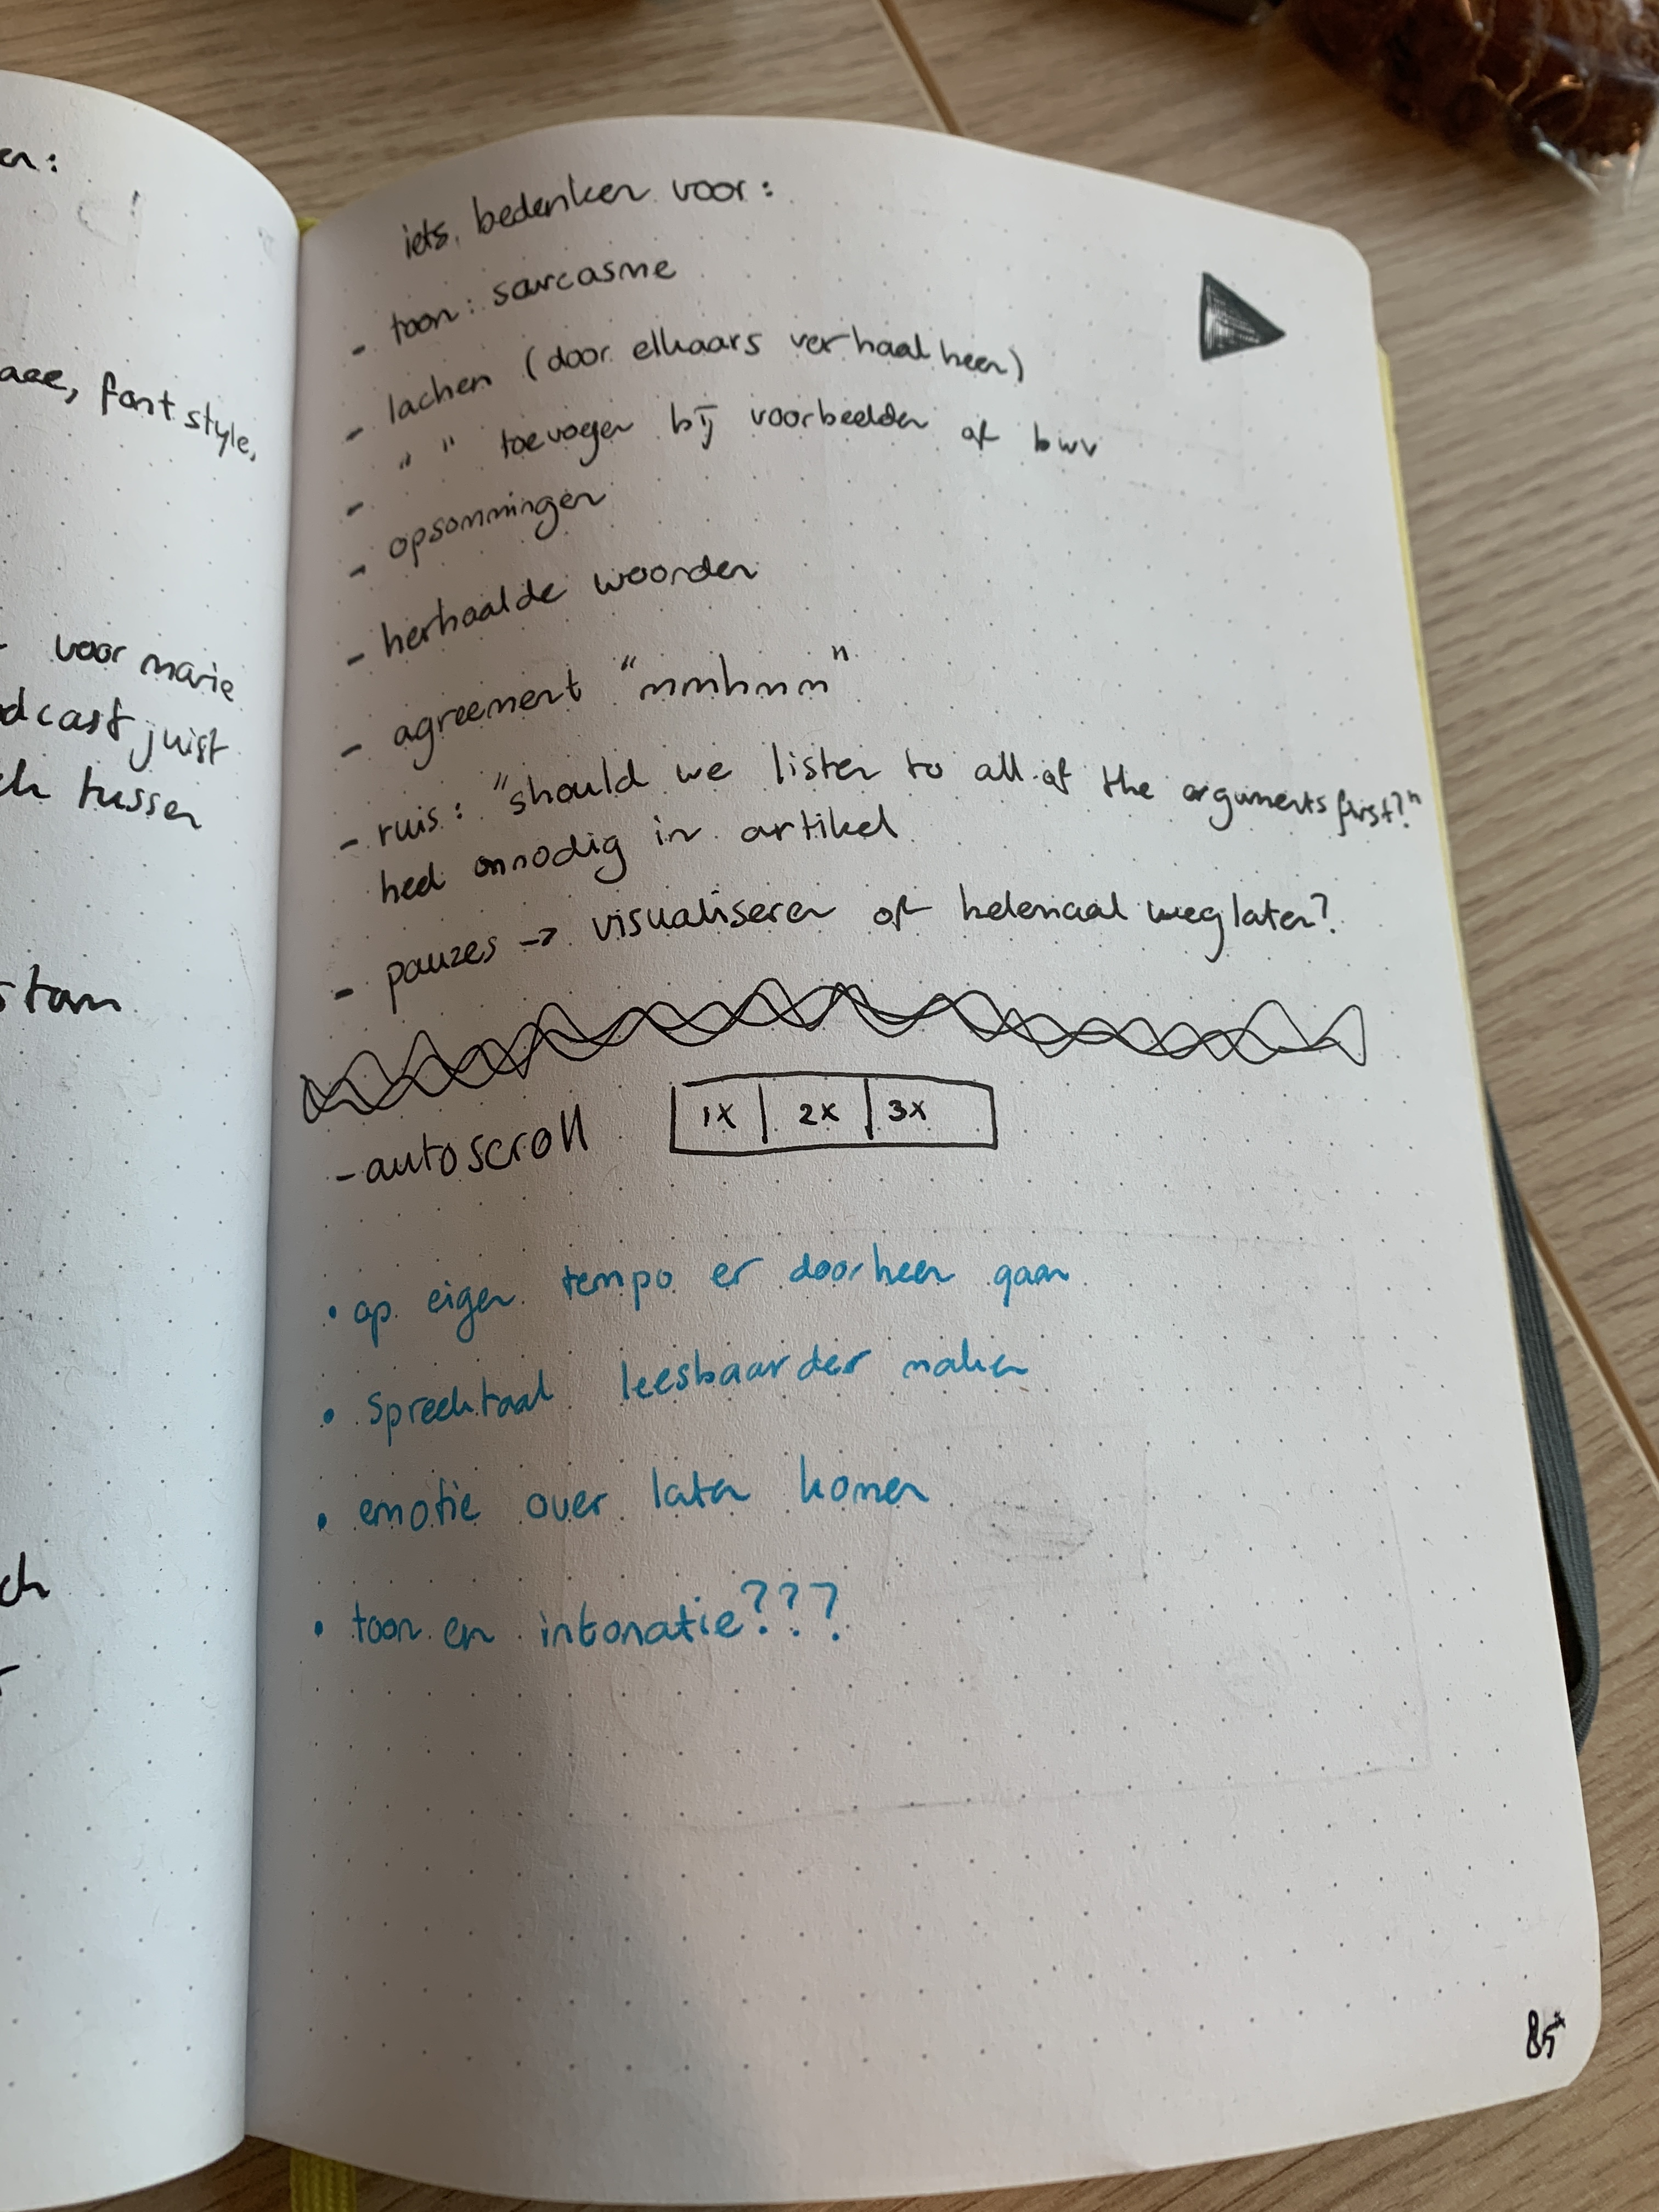 en:
font style,
voor marie
dcast juist
ch tussen
stam
ch
iets bedenken voor:
- toon: sarcasme
- lachen (door elkaars verhaal heen)
- " " toevoegen bij voorbeelden of bwv
- opsommingen
- herhaalde woorden
- agreement "mmhmm"
- ruis: "should we listen to all of the arguments first?"
heel onnodig in artikel
- pauzes -> visualiseren of helemaal weglaten?
- autoscroll 1x | 2x | 3x
• op eigen tempo er doorheen gaan
• spreektaal leesbaarder maken
• emotie over laten komen
• toon en intonatie???
85